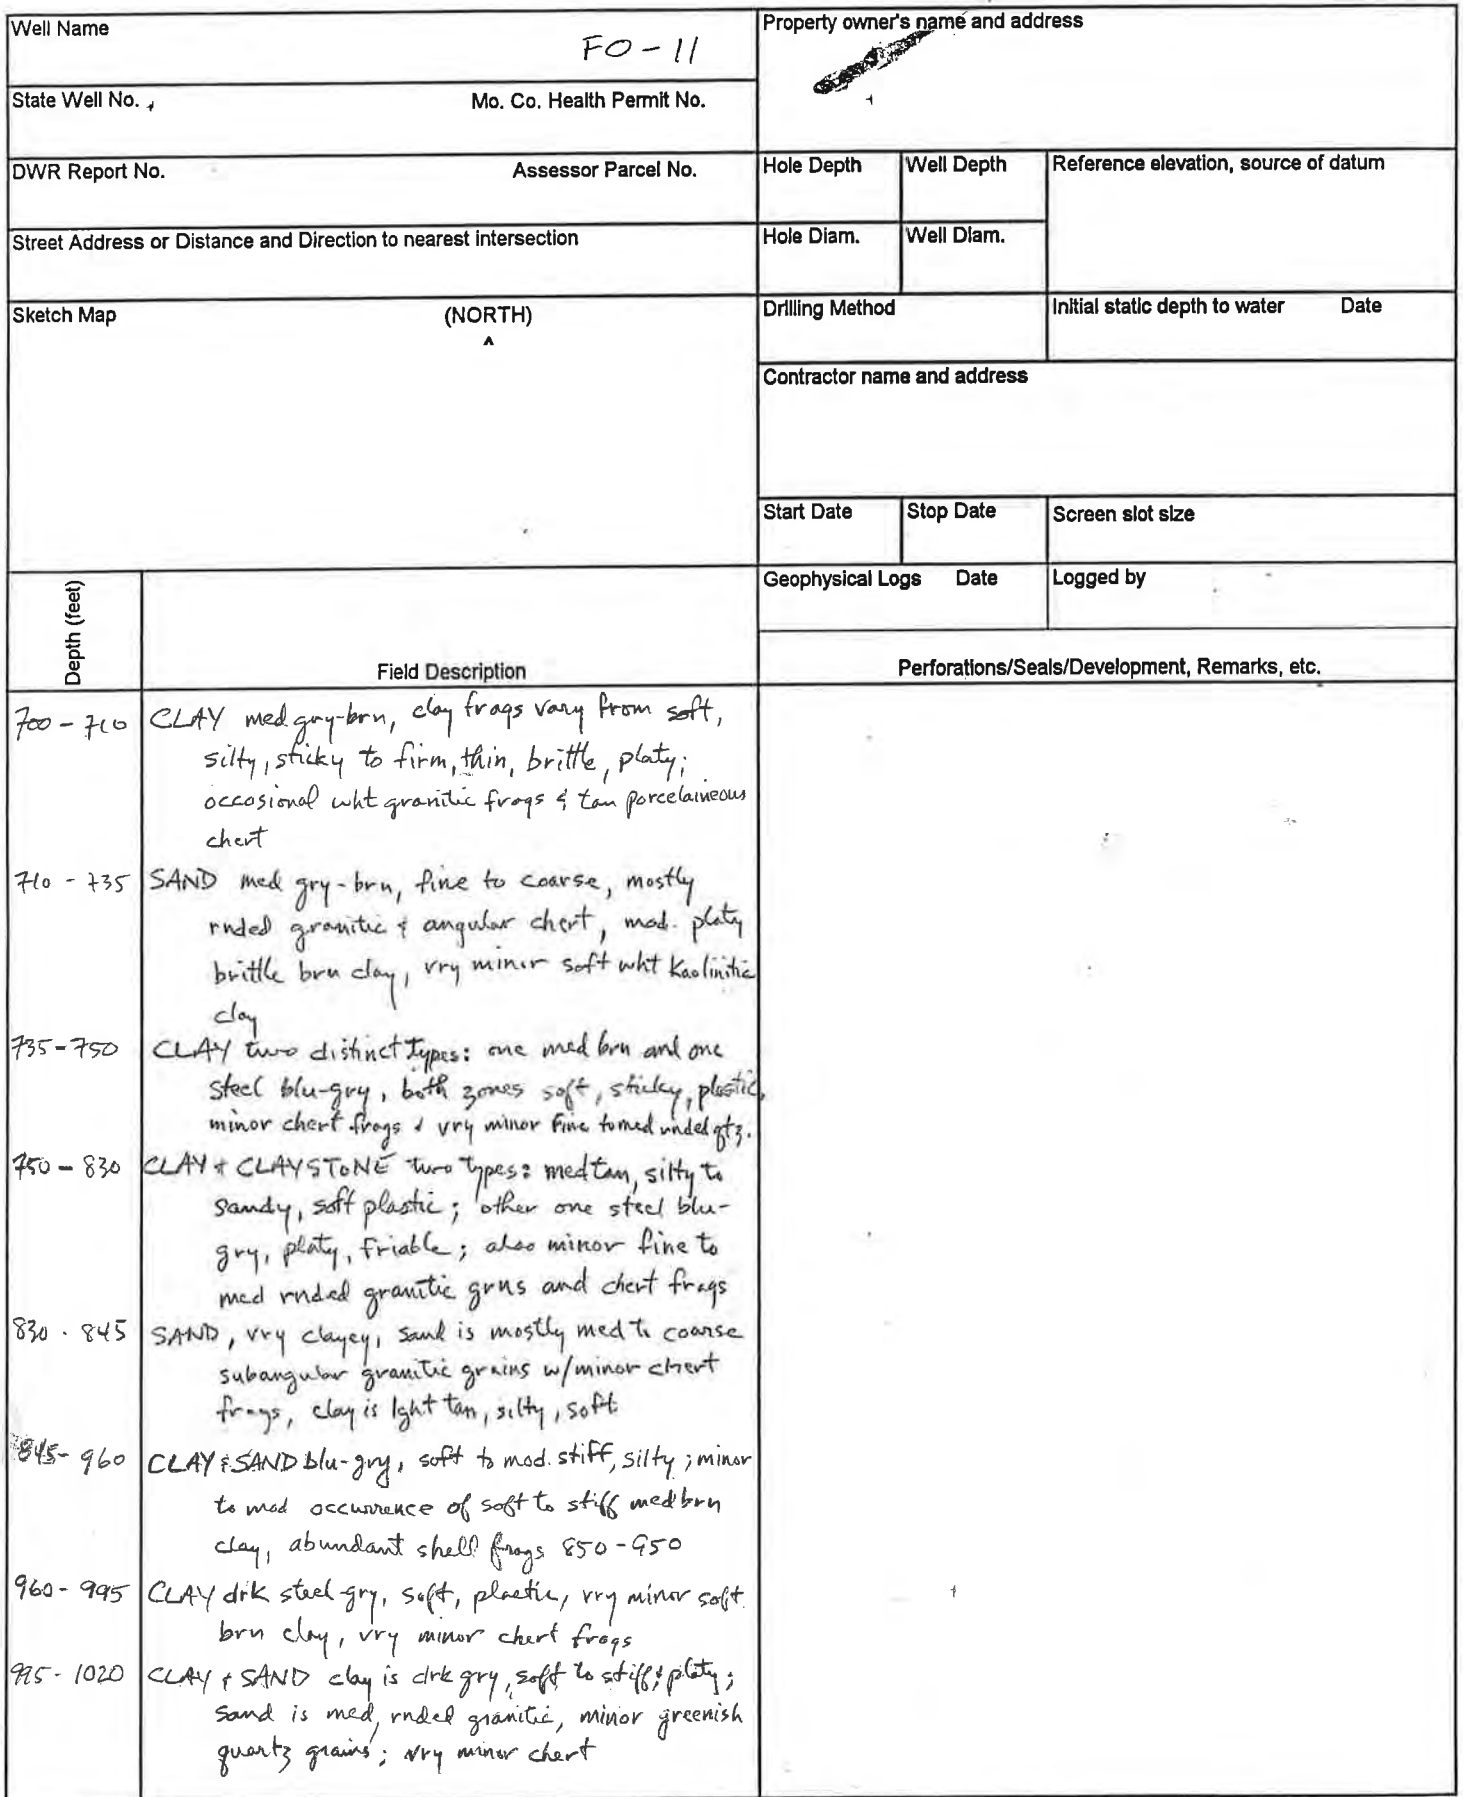 Well Name
FO-11
Property owner's name and address
State Well No.
Mo. Co. Health Permit No.
DWR Report No.
Assessor Parcel No.
Hole Depth
Well Depth
Reference elevation, source of datum
Street Address or Distance and Direction to nearest intersection
Hole Diam.
Well Diam.
Sketch Map
(NORTH)
^
Drilling Method
Initial static depth to water
Date
Contractor name and address
Start Date
Stop Date
Screen slot size
Geophysical Logs
Date
Logged by
Depth (feet)
Field Description
Perforations/Seals/Development, Remarks, etc.
700-710 CLAY med gry-brn, clay frags vary from soft,
silty, sticky to firm, thin, brittle, platy;
occasional wht granitic frags & tan porcelaineous
chert
710-735 SAND med gry-brn, fine to coarse, mostly
rnded granitic & angular chert, mod. platy
brittle brn clay, vry minor soft wht Kaolinitic
clay
735-750 CLAY two distinct types: one med brn and one
steel blu-gry, both zones soft, sticky, plastic,
minor chert frags & vry minor fine to med rnded qtz.
750-830 CLAY & CLAYSTONE two types: med tan, silty to
sandy, soft plastic; other one steel blu-
gry, platy, friable; also minor fine to
med rnded granitic grns and chert frags
830-845 SAND, vry clayey, sand is mostly med to coarse
subangular granitic grains w/minor chert
frags, clay is lght tan, silty, soft
845-960 CLAY & SAND blu-gry, soft to mod. stiff, silty; minor
to mod occurrence of soft to stiff med brn
clay, abundant shell frags 850-950
960-995 CLAY drk steel-gry, soft, plastic, vry minor soft
brn clay, vry minor chert frags
995-1020 CLAY & SAND clay is drk gry, soft to stiff, platy;
sand is med, rnded granitic, minor greenish
quartz grains; vry minor chert